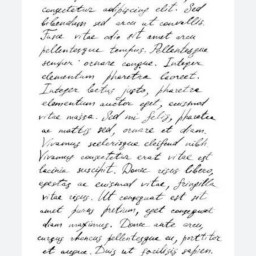 consectetur adipiscing elit. Sed
bibendum sed arcu ut convallis.
Fusce vitae odio sit amet arcu
pellentesque tempus. Pellentesque
semper ornare congue. Integer
elementum pharetra laoreet.
Integer lectus justo, pharetra
elementum auctor eget, euismod
vitae massa. Sed mi felis, pharetra
ac mattis sed, ornare et diam.
Vivamus scelerisque eleifend nibh
Vivamus consectetur erat vitae est
lacinia suscipit. Donec risus libero,
egestas ac euismod vitae, fringilla
vitae risus. Ut consequat est sit
amet purus pretium, eget consequat
diam maximus. Donec ante arcu,
cursus rhoncus pellentesque ac, porttitor
et augue. Duis ut facilisis sapien.